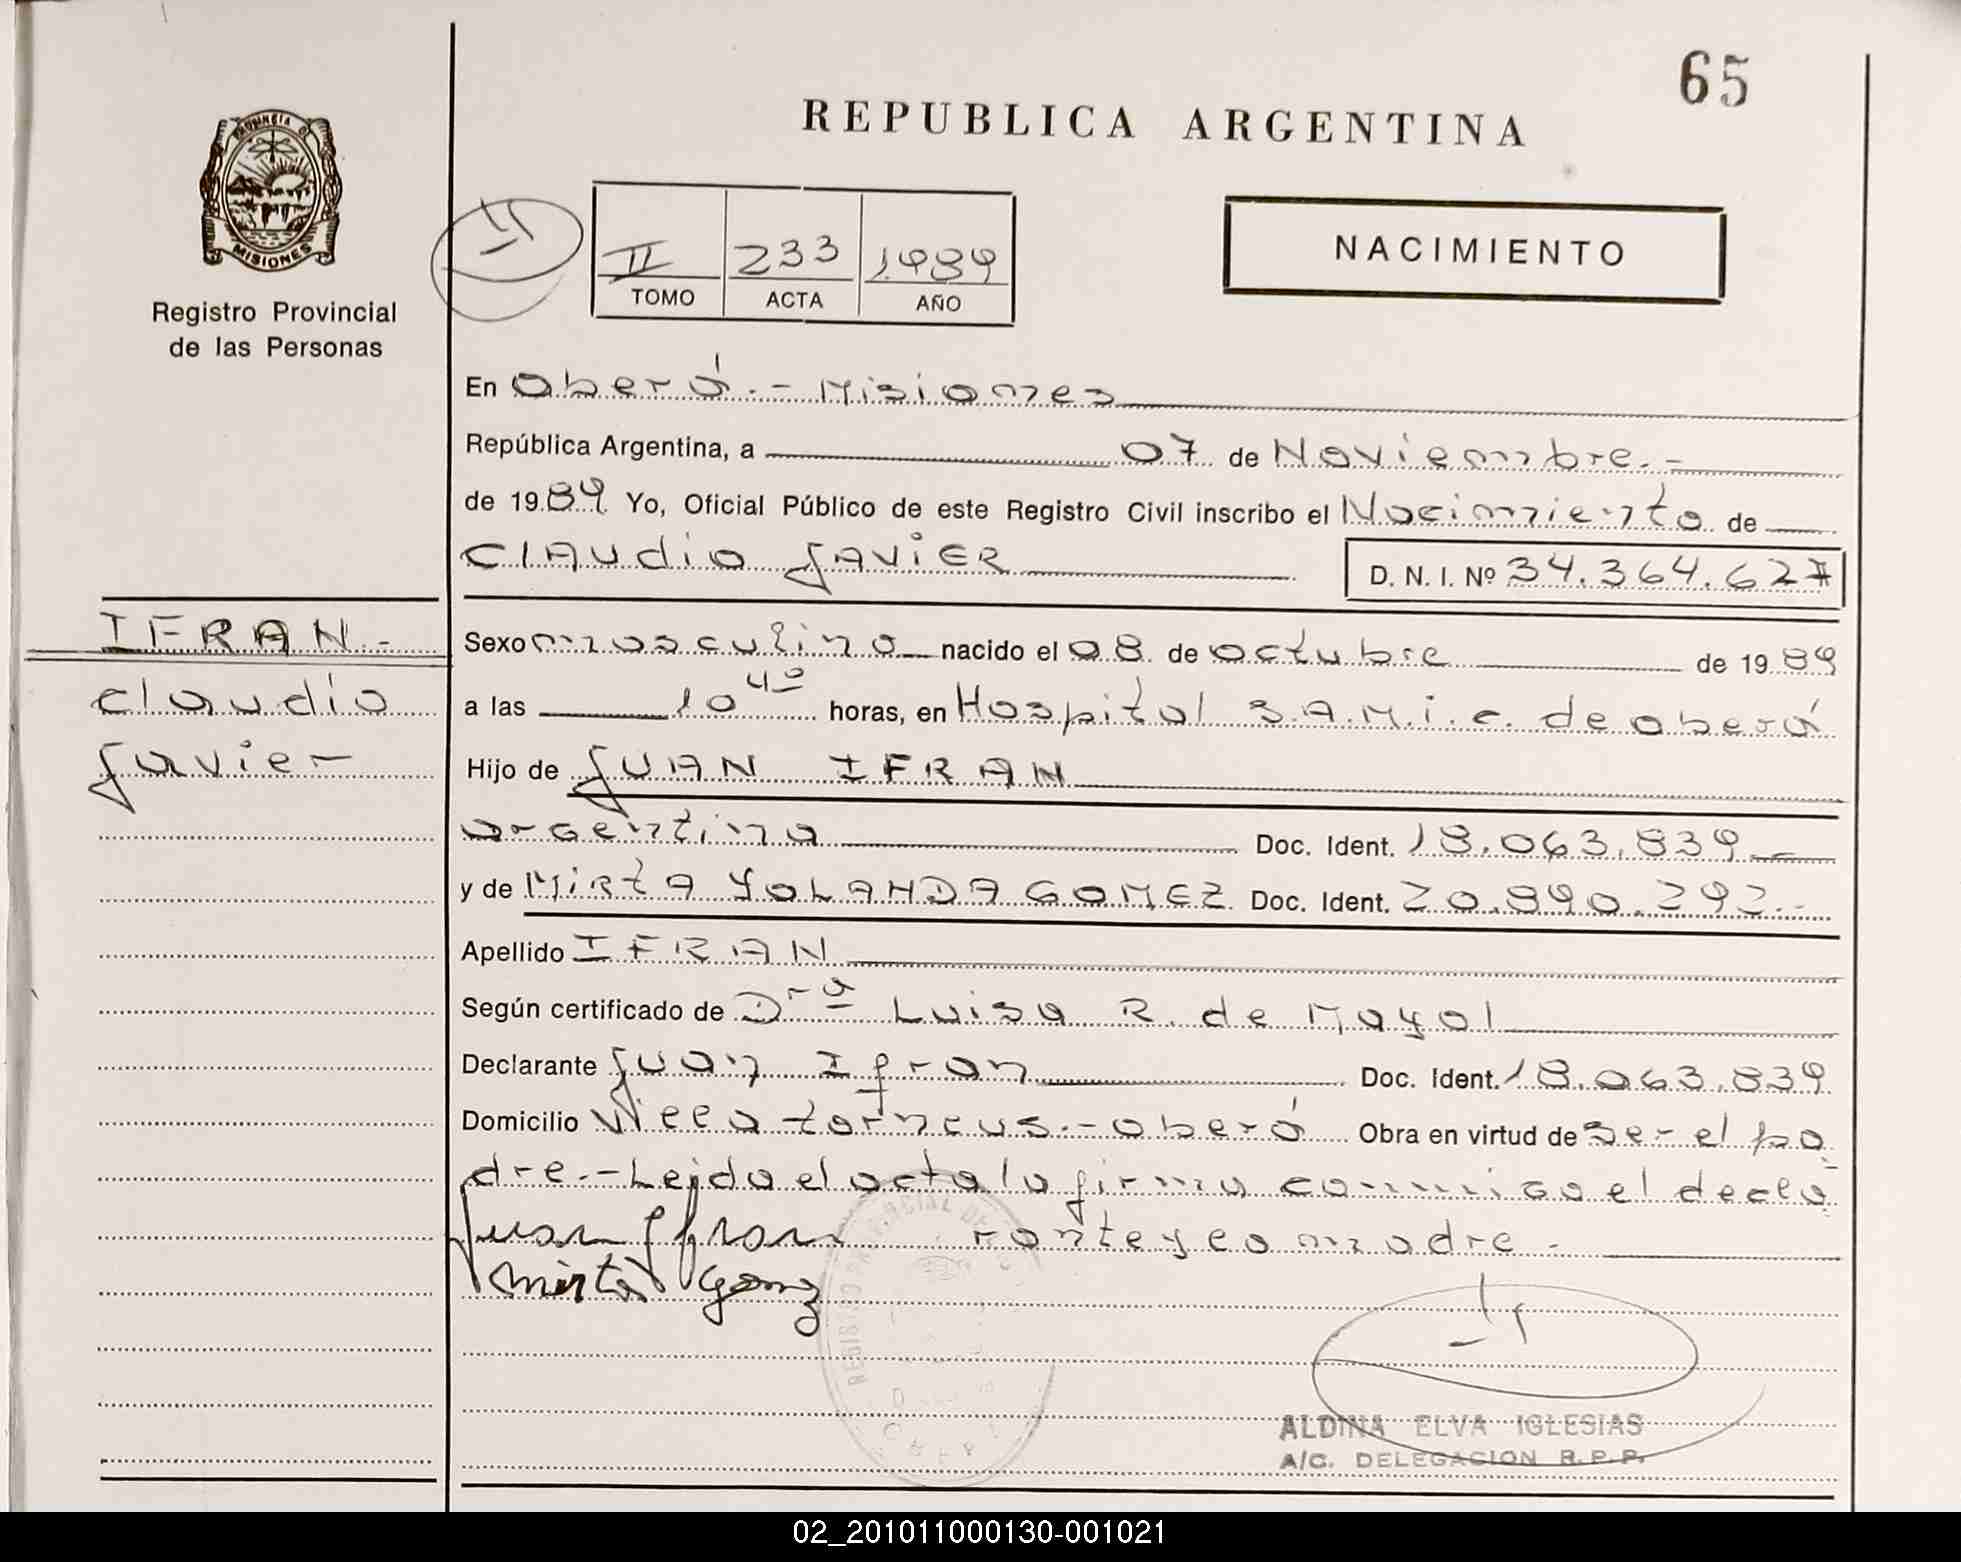 65
REPUBLICA ARGENTINA
PROVINCIA D
MISIONES
Registro Provincial
de las Personas
II 233 1989
TOMO ACTA AÑO
NACIMIENTO
En Oberá.- Misiones
República Argentina, a 07 de Noviembre.-
de 1989 Yo, Oficial Público de este Registro Civil inscribo el Nacimiento de
Claudio Javier D. N. I. Nº 34.364.627
IFRAN.-
Claudio
Javier
Sexo masculino nacido el 08 de octubre de 1989
a las 10 40 horas, en Hospital S.A.M.i.c. de oberá
Hijo de JUAN IFRAN
argentina Doc. Ident. 18.063.839.-
y de MIRTA YOLANDA GOMEZ Doc. Ident. 20.890.292.-
Apellido IFRAN
Según certificado de Dra Luisa R. de Mayol
Declarante Juan Ifran Doc. Ident. 18.063.839
Domicilio Villa torneus.- oberá Obra en virtud de ser el pa
dre.- Leida el acta la firma conmigo el decla
rante y la madre.-
Juan Ifran
Mirta Gomez
REGISTRO PROVINCIAL DE
ALDINA ELVA IGLESIAS
A/C. DELEGACION R.P.P.
02_201011000130-001021